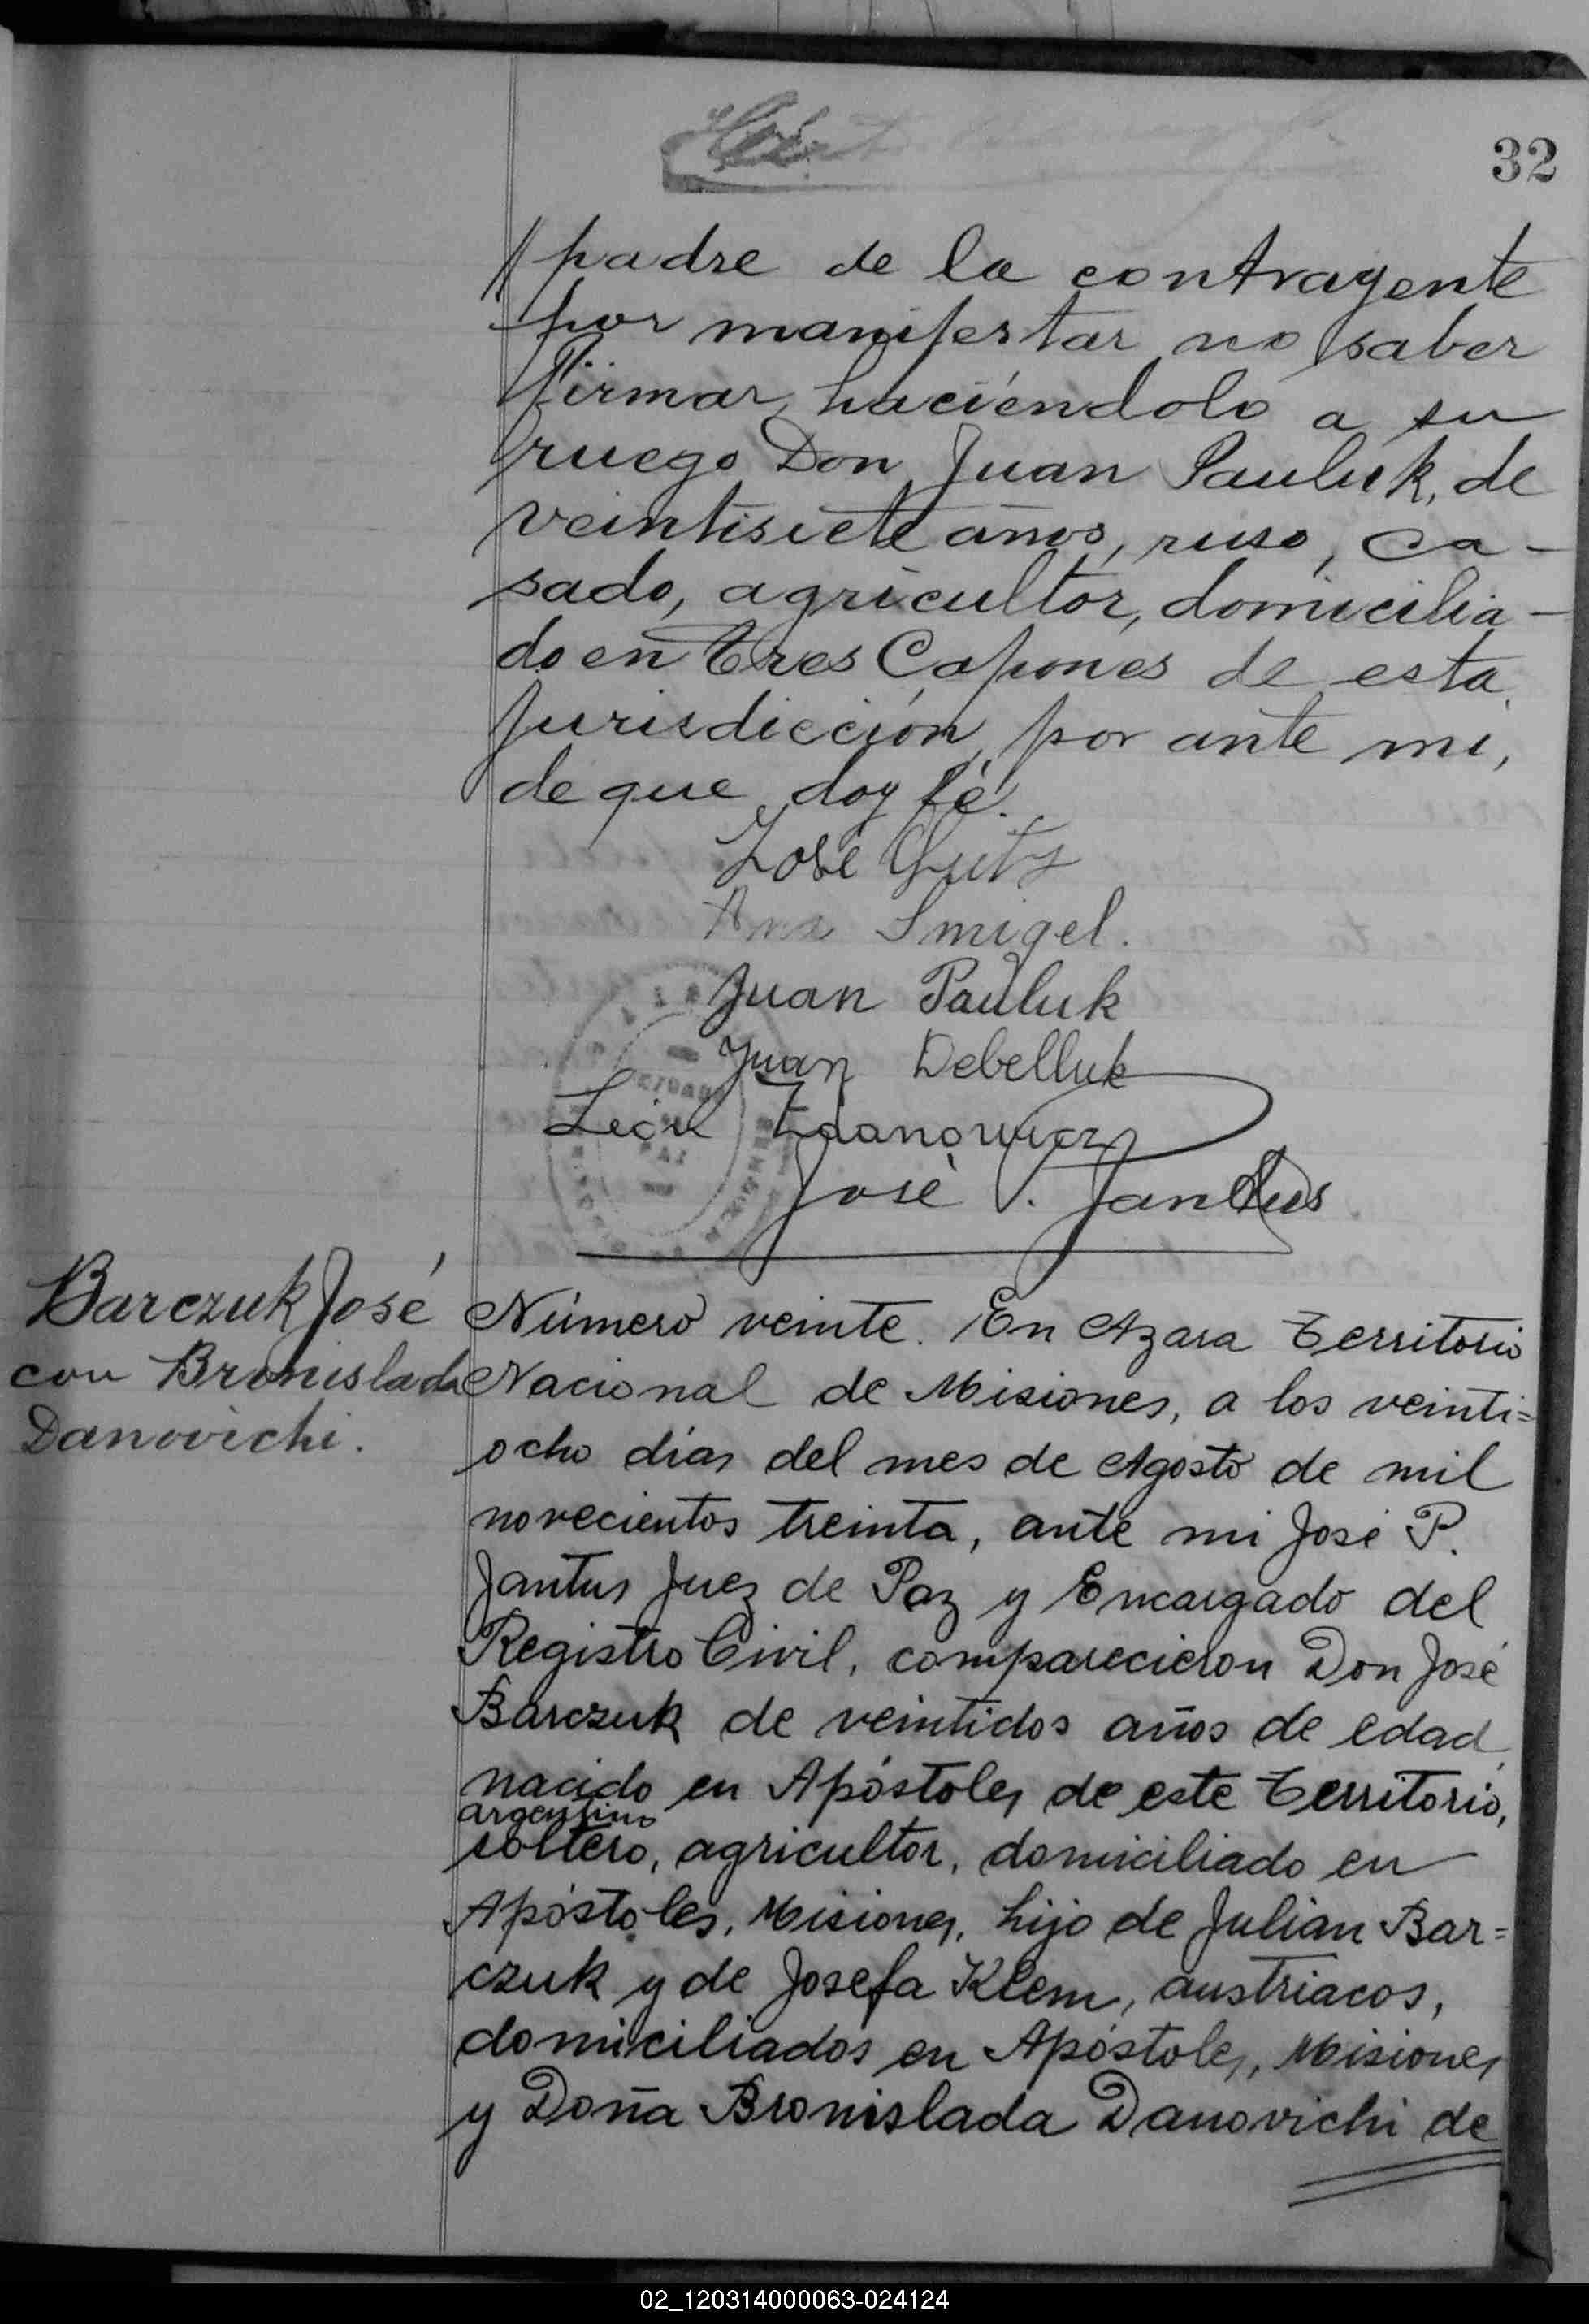 32
padre de la contrayente
por manifestar no saber
firmar, haciéndolo a su
ruego Don Juan Pauluk, de
veintisiete años, ruso, ca-
sado, agricultor, domicilia-
do en Tres Capones de esta
Jurisdicción, por ante mi,
de que doy fé.
José
Ana Smigel.
Juan Pauluk
Juan Debelluk
León Zdanowicz
José P. Jantus
Barczuk José
con Bronislada
Danovichi.
Número veinte. En Azara Territorio
Nacional de Misiones, a los veinti=
ocho dias del mes de Agosto de mil
novecientos treinta, ante mi José P.
Jantus Juez de Paz y Encargado del
Registro Civil, comparecieron Don José
Barczuk de veintidos años de edad,
nacido en Apóstoles de este Territorio,
argentino
soltero, agricultor, domiciliado en
Apóstoles, Misiones, hijo de Julian Bar=
czuk y de Josefa Klem, austriacos,
domiciliados en Apóstoles, Misiones
y Doña Bronislada Danovichi de
02_120314000063-024124